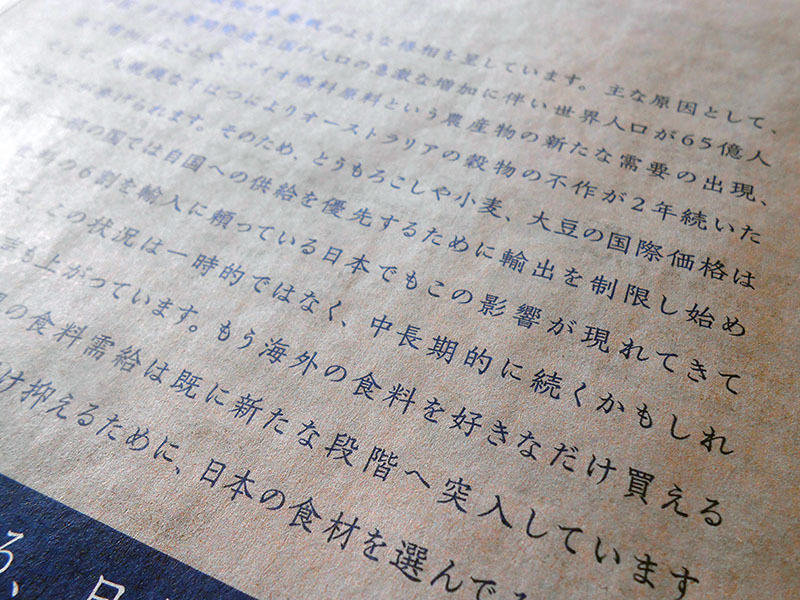 のような様相を呈しています。 主な原因として、
の人口の急激な増加に伴い世界人口が65億人
バイオ燃料原料という農産物の新たな需要の出現、
干ばつによりオーストラリアの穀物の不作が2年続いた
られます。そのため、とうもろこしや小麦、大豆の国際価格は
の国では自国への供給を優先するために輸出を制限し始め
の6割を輸入に頼っている日本でもこの影響が現れてきて
この状況は一時的ではなく、中長期的に続くかもしれ
も上がっています。もう海外の食料を好きなだけ買える
の食料需給は既に新たな段階へ突入しています
け抑えるために、日本の食材を選んで
る、日